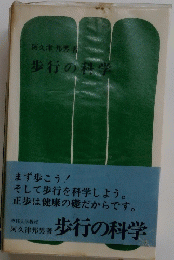 阿久津邦男著
歩行の科学
まず歩こう!
そして歩行を科学しよう。
正歩は健康の礎だからです。
阿久津邦男著
歩行の科学